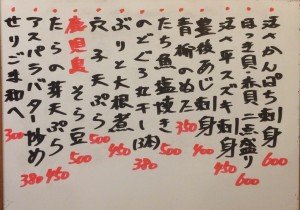 活かんぱち刺身 600
ほっき貝・赤貝二点盛り 600
活〆平スズキ刺身 450
豊後あじ刺身 400
青柳のぬた 350
たち魚塩焼き 500
のどぐろ丸干し(3本) 380
ぶりと大根煮 450
穴子天ぷら 500
鹿児島そら豆 500
たらの芽天ぷら 450
アスパラバター炒め 380
せりごま和へ 300